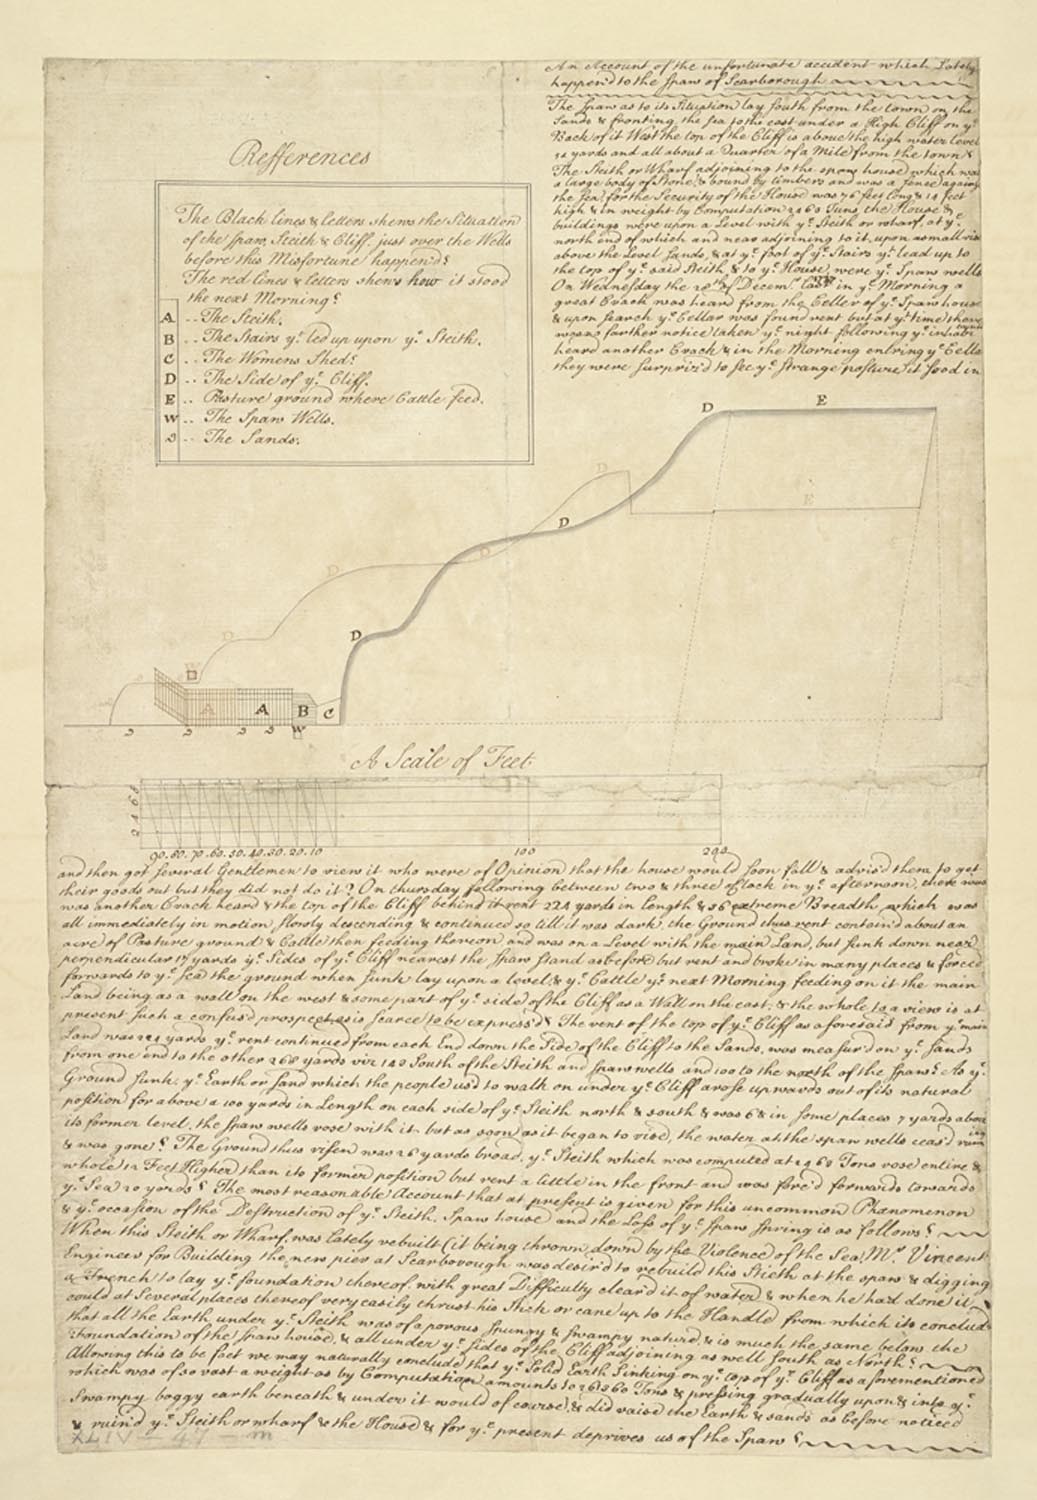 An Account of the unfortunate accident which Lately
happen'd to the Spaw of Scarborough
The Spaw as to its Situation lay South from the town on the
Sands & fronting the Sea to the east under a High Cliff on ye
Back of it West the top of the Cliff is above the high water level
54 yards and all about a Quarter of a Mile from the town
The Steith or Wharf adjoining to the spaw house which was
a large body of Stone & bound by timbers and was a fence against
the Sea for the Security of the House was 76 feet long & 14 feet
high & in weight by Computation 2460 Tuns, the House &
buildings were upon a Level with ye Steith or wharf, at ye
north end of which and near adjoining to it upon a small rise
above the Level Sands, & at ye foot of ye Stairs yt lead up to
the top of ye said Steith, & to ye House were ye Spaw wells
On Wednesday the 28th of Decemr last in ye Morning a
great Crack was heard from the Celler of ye Spaw house
& upon search ye Cellar was found rent but at yt time there
was no farther notice taken ye night following ye inhabi
heard another Crack & in the Morning entring ye Celle
they were surpriz'd to see ye strange posture it stood in
Refferences
The Black lines & letters shews the Situation
of the Spaw, Steith & Cliff, just over the Wells
before this Misfortune happen'd
The red lines & letters shews how it stood
the next Morning
A .. The Steith.
B .. The Stairs yt led up upon ye Steith.
C .. The Womens Shed
D .. The Side of ye Cliff.
E .. Pasture ground where Cattle feed.
W .. The Spaw Wells.
S .. The Sands.
D E
D E
D
D
D
D D
W
A A B C
S S S S W
A Scale of Feet
2 4 6 8
90. 80. 70. 60. 50. 40. 30. 20. 10 100 200
and then got Several Gentlemen to view it who were of Opinion that the house would soon fall & advis'd them to get
their goods out but they did not do it On thursday following between two & three Clock in ye afternoon, there was
was another Crack heard & the top of the Cliff behind it rent 224 yards in length & 36 extreme Breadth which was
all immediately in motion slowly descending & continued so till it was dark, the Ground thus rent contain'd about an
acre of Pasture ground & Cattle then feeding thereon and was on a Level with the main Land, but sunk down near
perpendicular 17 yards ye Sides of ye Cliff nearest the Spaw stand as before but rent and broke in many places & forc'd
forwards to ye Sea the ground when sunk lay upon a level & ye Cattle ye next Morning feeding on it the main
Land being as a wall on the west & some part of ye side of the Cliff as a Wall on the east, & the whole to a view is at
present such a confus'd prospect as is scarce to be express'd The rent of the top of ye Cliff as aforesaid from ye main
Land was 224 yards ye rent continued from each End down the Side of the Cliff to the Sands, was measur'd on ye Sands
from one end to the other 268 yards viz 168 South of the Steith and Spaw wells and 100 to the north of the Spaw As ye
Ground sunk, ye Earth or Sand which the people us'd to walk on under ye Cliff arose upwards out of its natural
position for above a 100 yards in Length on each side of ye Steith north & south & was 6 & in some places 7 yards above
its former level, the Spaw wells rose with it but as soon as it began to rise, the water at the spaw wells ceas'd run
& was gone The Ground thus risen was 26 yards broad, ye Steith which was computed at 2460 Tons rose entire &
whole 12 Feet Higher than its former position but rent a little in the front and was forc'd forwards towards
ye Sea 20 yards The most reasonable Account that at present is given for this uncommon Phænomenon
& ye occasion of the Destruction of ye Steith, Spaw house and the Loss of ye Spaw Spring is as follows
When this Steith or Wharf was lately rebuilt (it being thrown down by the Violence of the Sea) Mr Vincent
Engineer for Building the new pier at Scarborough was desir'd to rebuild this Stieth at the spaw & digging
a Trench to lay ye foundation thereof with great Difficulty clear'd it of water & when he had done it,
could at several places thereof very easily thrust his Stick or cane up to the Handle from which its conclud
that all the Earth under ye Steith was of a porous spungy & swampy nature & is much the same below the
foundation of the Spaw house & all under ye sides of the Cliff adjoining as well South as North
Allowing this to be fact we may naturally conclude that ye Solid Earth Sinking on ye top of ye Cliff as aforementioned
which was of so vast a weight as by Computation amounts to 261360 Tons & pressing gradually upon & into ye
Swampy boggy earth beneath & under it would of course, & did raise the Earth & sands as before noticed
& ruin'd ye Steith or wharf & the House & for ye present deprives us of the Spaw
XLIV - 47 - m